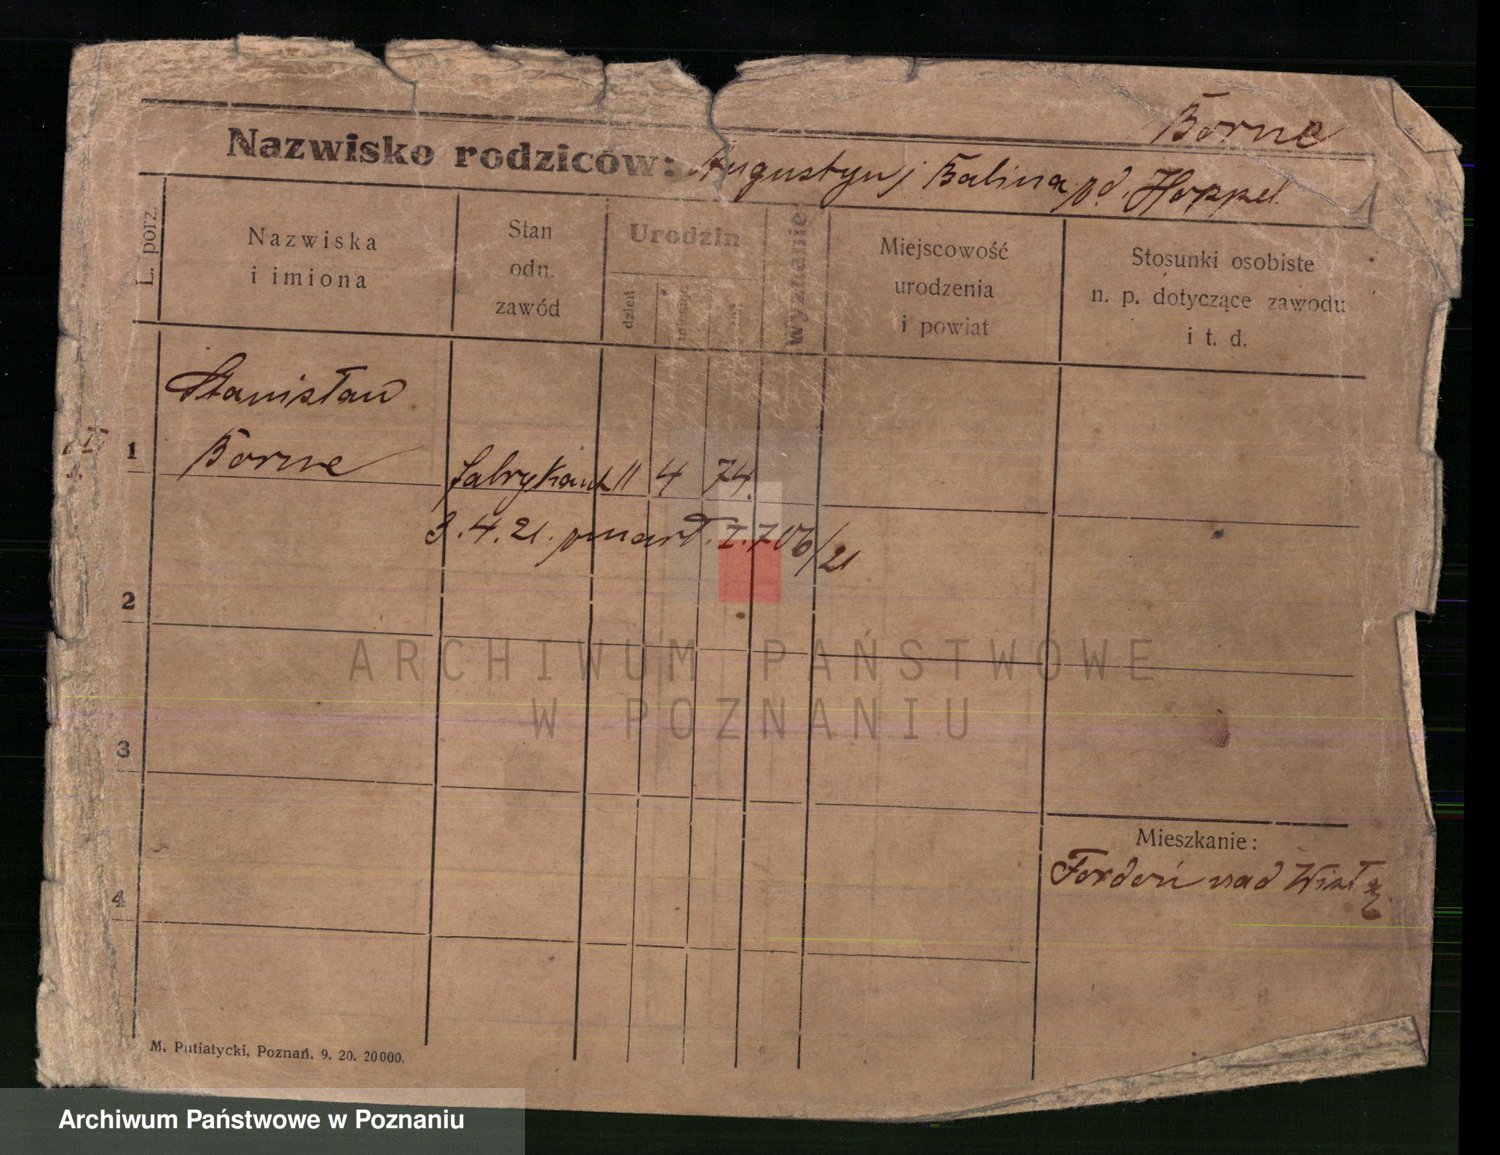 Borne
Nazwisko rodziców: Augustyn i Balina pd. Hoppel
L. porz.
Nazwiska
i imiona
Stan
odn.
zawód
Urodzin
dzień
miesiąc
wyznanie
Miejscowość
urodzenia
i powiat
Stosunki osobiste
n. p. dotyczące zawodu
i t. d.
1
Stanisław
Borne
fabrykant 11 4 74.
3. 4. 21. zmarł. I. 706/21
2
3
4
Mieszkanie:
Fordoń nad Wisłą
ARCHIWUM PAŃSTWOWE
W POZNANIU
M. Putiatycki, Poznań. 9. 20. 20000.
Archiwum Państwowe w Poznaniu